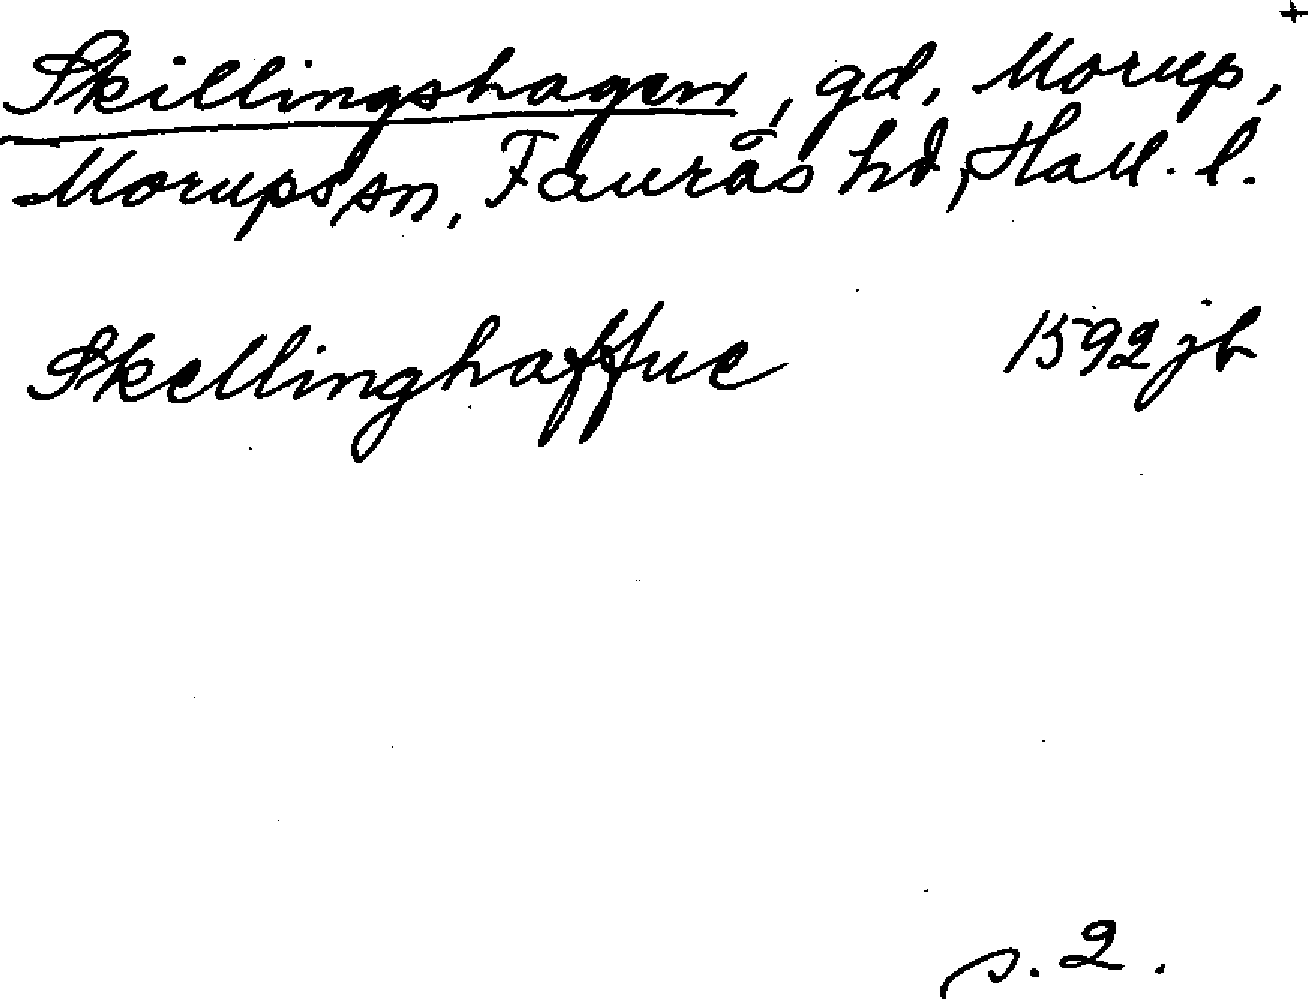 +
Skillingshagen, gd, Morup,
Morups sn, Faurås hd, Hall. l.
Skellinghaffue 1592 jb
s. 2.